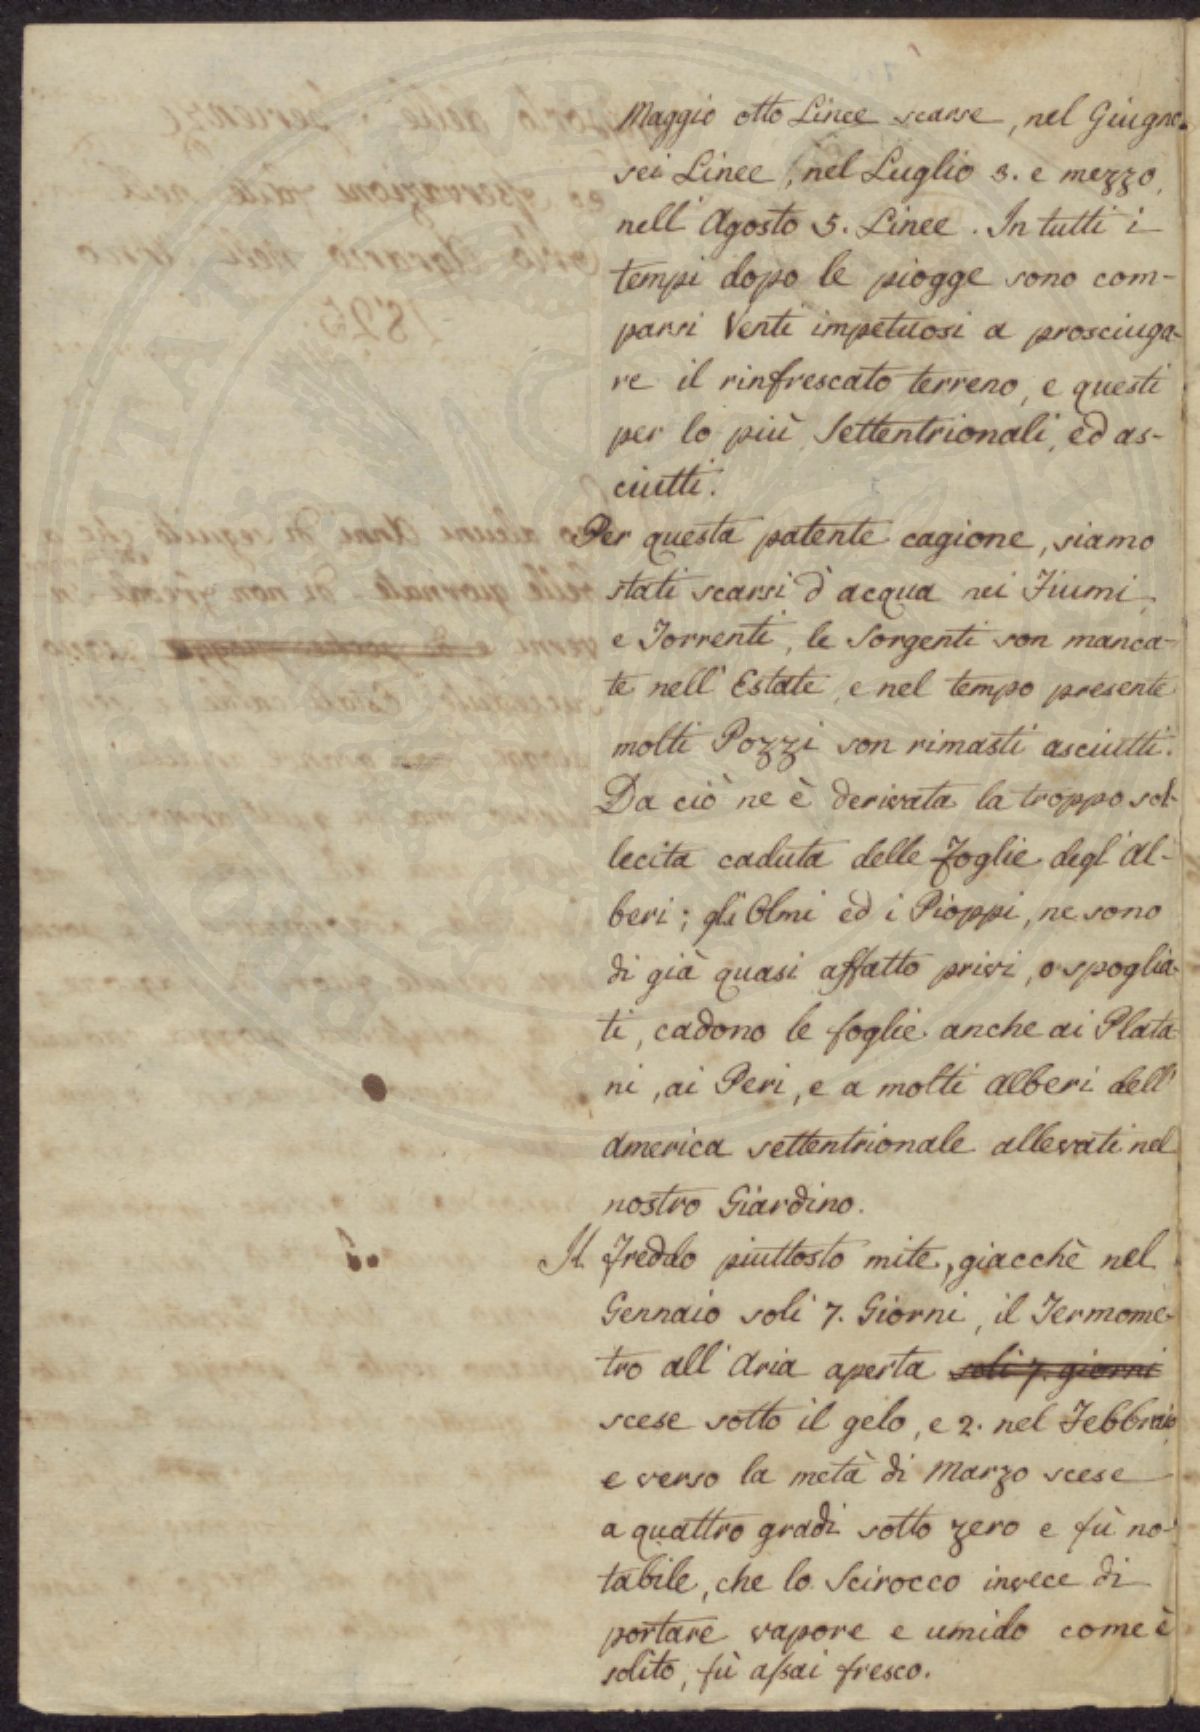 Maggio otto Linee scarse, nel Giugno
sei Linee, nel Luglio 3. e mezzo,
nell' Agosto 5. Linee. In tutti i
tempi dopo le piogge sono com-
parsi Venti impetuosi a prosciuga-
re il rinfrescato terreno, e questi
per lo più Settentrionali, ed as-
ciutti.
Per questa patente cagione, siamo
stati scarsi d'acqua nei Fiumi,
e Torrenti, le Sorgenti son manca-
te nell' Estate, e nel tempo presente
molti Pozzi son rimasti asciutti.
Da ciò ne è derivata la troppo sol-
lecita caduta delle Foglie degl' Al-
beri; gli Olmi ed i Pioppi, ne sono
di già quasi affatto privi, o spoglia-
ti, cadono le foglie anche ai Plata-
ni, ai Peri, e a molti alberi dell'
America settentrionale allevati nel
nostro Giardino.
Il Freddo piuttosto mite, giacchè nel
Gennaio soli 7. Giorni, il Termome-
tro all' Aria aperta soli 7. giorni
scese sotto il gelo, e 2. nel Febbraio,
e verso la metà di Marzo scese
a quattro gradi sotto zero e fù no-
tabile, che lo Scirocco invece di
portare vapore e umido come è
solito, fù assai fresco.